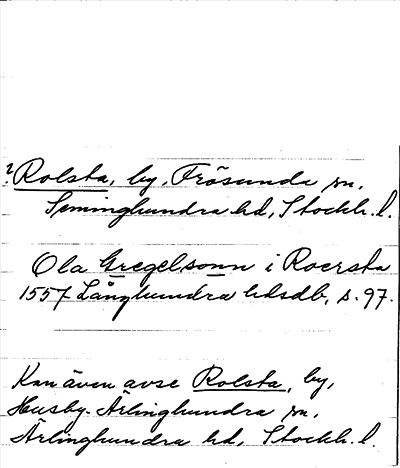 ? Rolsta, by, Frösunda sn,
Seminghundra hd, Stockh. l.
Ola Gregelsonn i Roersta
1557 Långhundra hdsdb, s. 97.
Kan även avse Rolsta, by,
Husby-Ärlinghundra sn,
Ärlinghundra hd, Stockh. l.